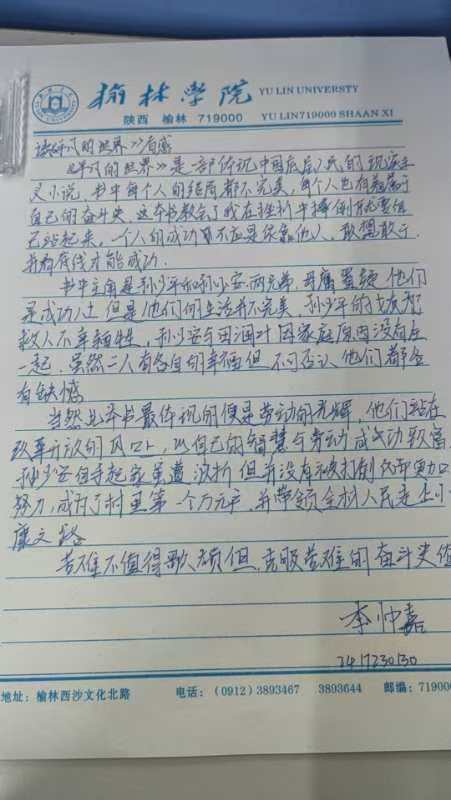 榆林学院 YU LIN UNIVERSTY
陕西 榆林 719000 YULIN719000 SHAAN XI
读《平凡的世界》有感
《平凡的世界》是一部体现中国底层人民的现实主
义小说,书中每个人的结局都不完美,每个人也有着属于
自己的奋斗史,这本书教会了我在挫折中摔倒就要自
己站起来,一个人的成功不应是依靠他人,敢想敢干
并有底线才能成功.
书中主角是孙少平和孙少安两兄弟,毋庸置疑他们
是成功人士但是他们何生活并不完美,孙少平的女友为
救人不幸牺牲,孙少安与田润叶因家庭原因没有在
一起,虽然二人有各自的幸福但不可否认他们都各
有缺憾
当然此本书最体现的便是劳动的光辉,他们站在
改革开放的风口上,以自己的智慧与劳动成功致富,
孙少安白手起家虽遭波折但并没有被打倒而更加
努力,成为了村里第一个万元户,并带领全村人民走上小
康之路
苦难不值得歌颂但,克服苦难的奋斗史值
李帅嘉
2417230130
地址:榆林西沙文化北路 电话:(0912)3893467 3893644 邮编:719000